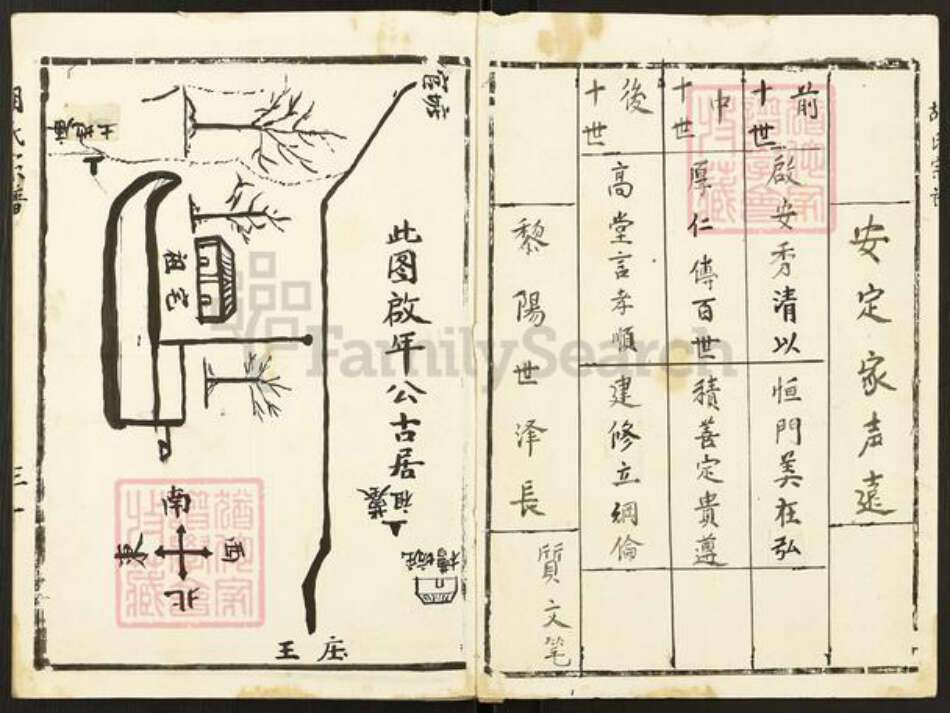 安定家声遠
前十世 啟安秀清以恒門美在弘
中十世 厚仁傳百世積善定貴遵
後十世 高堂言孝順建修立綱倫
黎陽世泽長
質文笔
此图啟年公古居
祖墓
祖宅
土地庙
南
東
西
北
王庄
FamilySearch